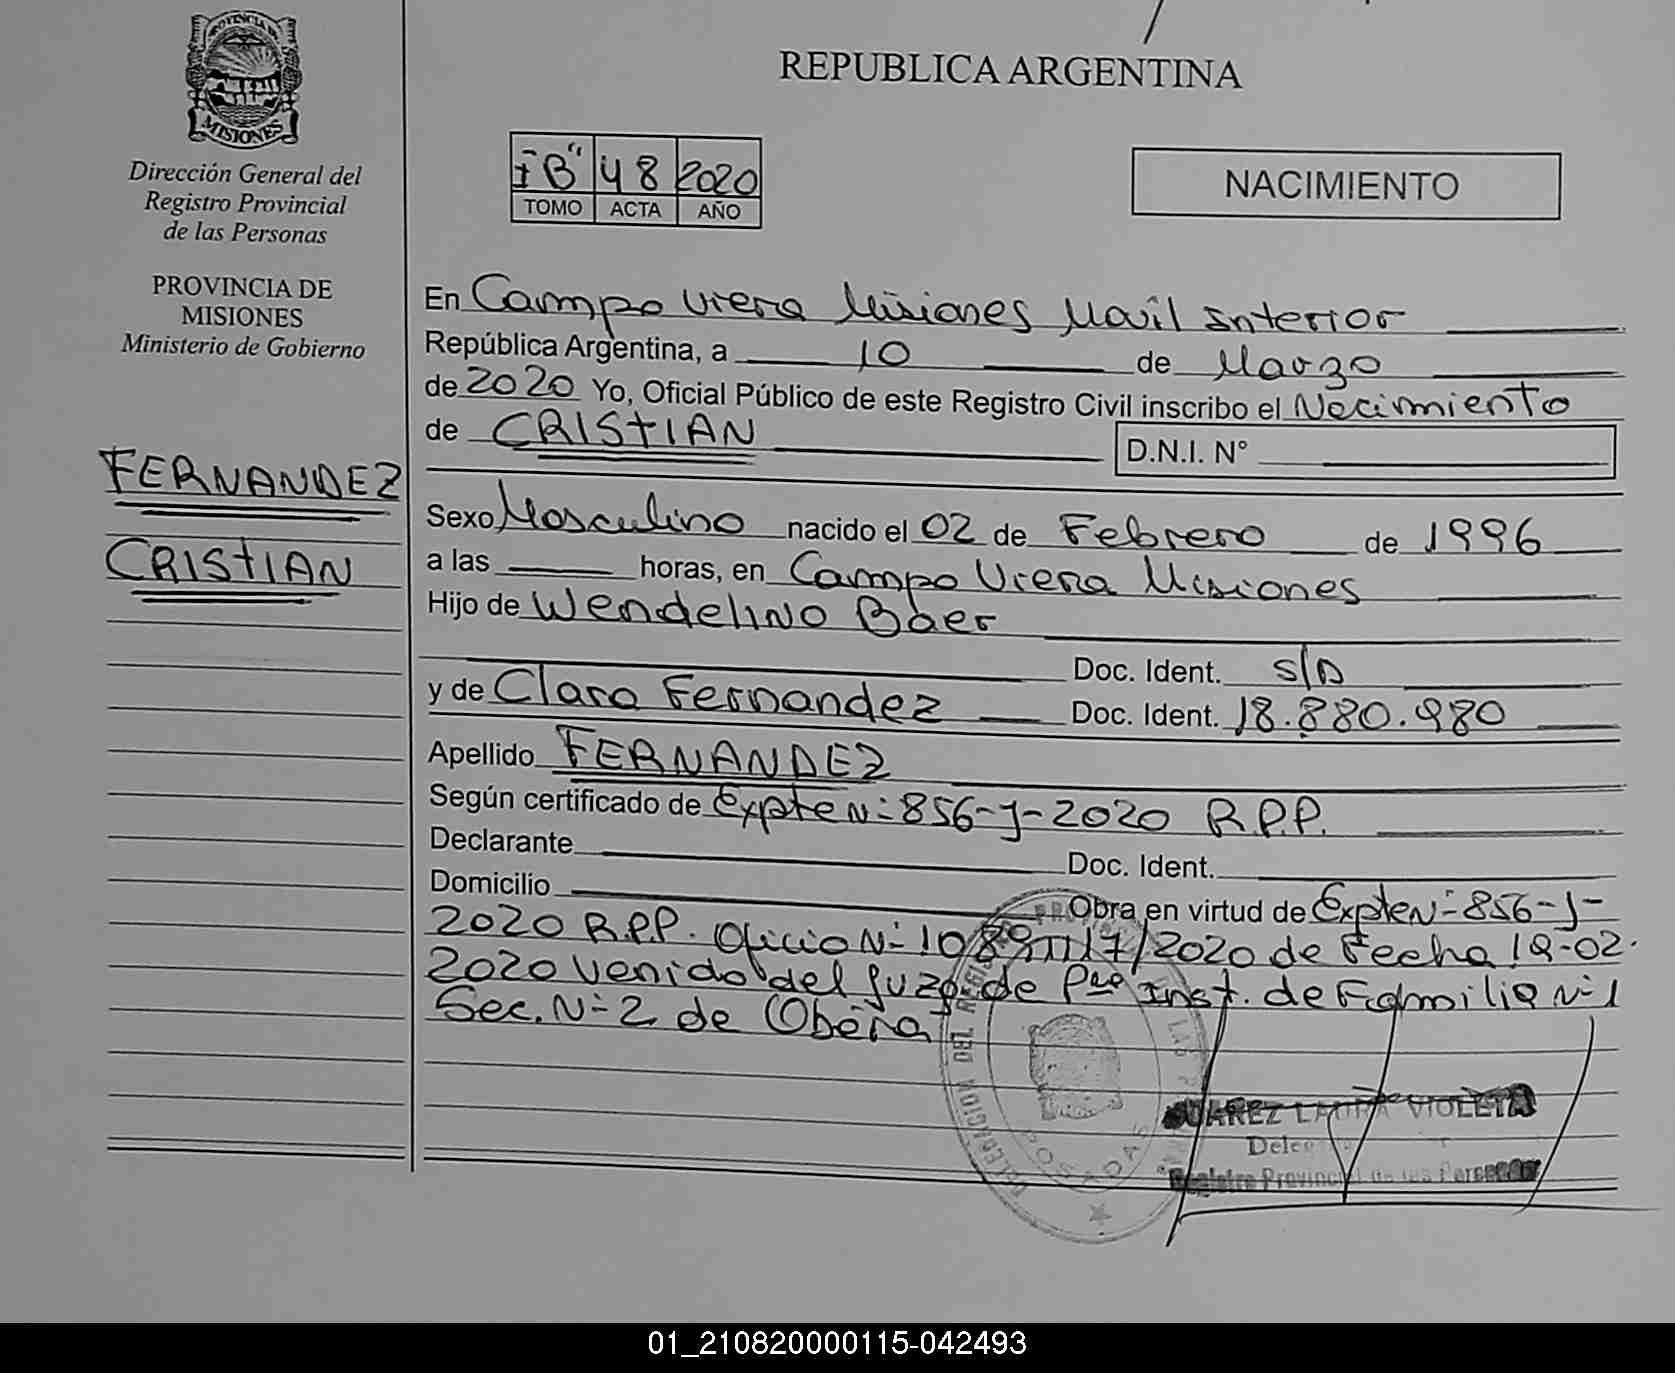 PROVINCIA DE
MISIONES
Dirección General del
Registro Provincial
de las Personas
PROVINCIA DE
MISIONES
Ministerio de Gobierno
FERNANDEZ
CRISTIAN
REPUBLICA ARGENTINA
"B" 48 2020
TOMO ACTA AÑO
NACIMIENTO
En Campo Viera Misiones Movil Interior
República Argentina, a 10 de Marzo
de 2020 Yo, Oficial Público de este Registro Civil inscribo el Nacimiento
de CRISTIAN D.N.I. N°
Sexo Masculino nacido el 02 de Febrero de 1996
a las horas, en Campo Viera Misiones
Hijo de Wendelino Baer
Doc. Ident. S/D
y de Clara Fernandez Doc. Ident. 18.880.980
Apellido FERNANDEZ
Según certificado de Expte N- 856-J-2020 R.P.P.
Declarante Doc. Ident.
Domicilio Obra en virtud de Expte N- 856-J-
2020 R.P.P. Oficio N- 10 /2020 de Fecha 19-02-
2020 venido del Juzg. de Pra Inst. de Familia N-1
Sec. N-2 de Oberá
SUAREZ LAURA VIOLETA
Registro Provincial de las Personas
POSADAS
01_210820000115-042493